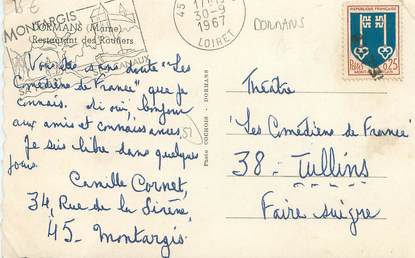 15 €
MONTARGIS
CANAUX
45
17H15
30-5
1967
LOIRET
DORMANS
DORMANS (Marne)
Restaurant des Routiers
51
Photo COCHOIS - DORMANS
REPUBLIQUE FRANÇAISE
0,25
POSTES
MONT-DE-MARSAN
Vous êtes sans doute "Les
Comédiens de France" que je
connais. Si oui, bonjour
aux amis et connaissances,
Je suis libre dans quelques
jours.
Camille Cornet,
34, Rue de la Sirène,
45 - Montargis.
Théâtre
"Les Comédiens de France"
38 - Tullins
Faire suivre